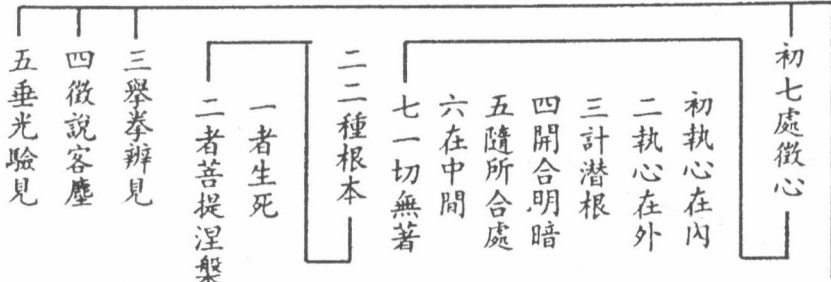 初七處徵心
初執心在內
二執心在外
三計潛根
四開合明暗
五隨所合處
六在中間
七一切無著
二二種根本
一者生死
二者菩提涅槃
三舉拳辨見
四徵說客塵
五垂光驗見